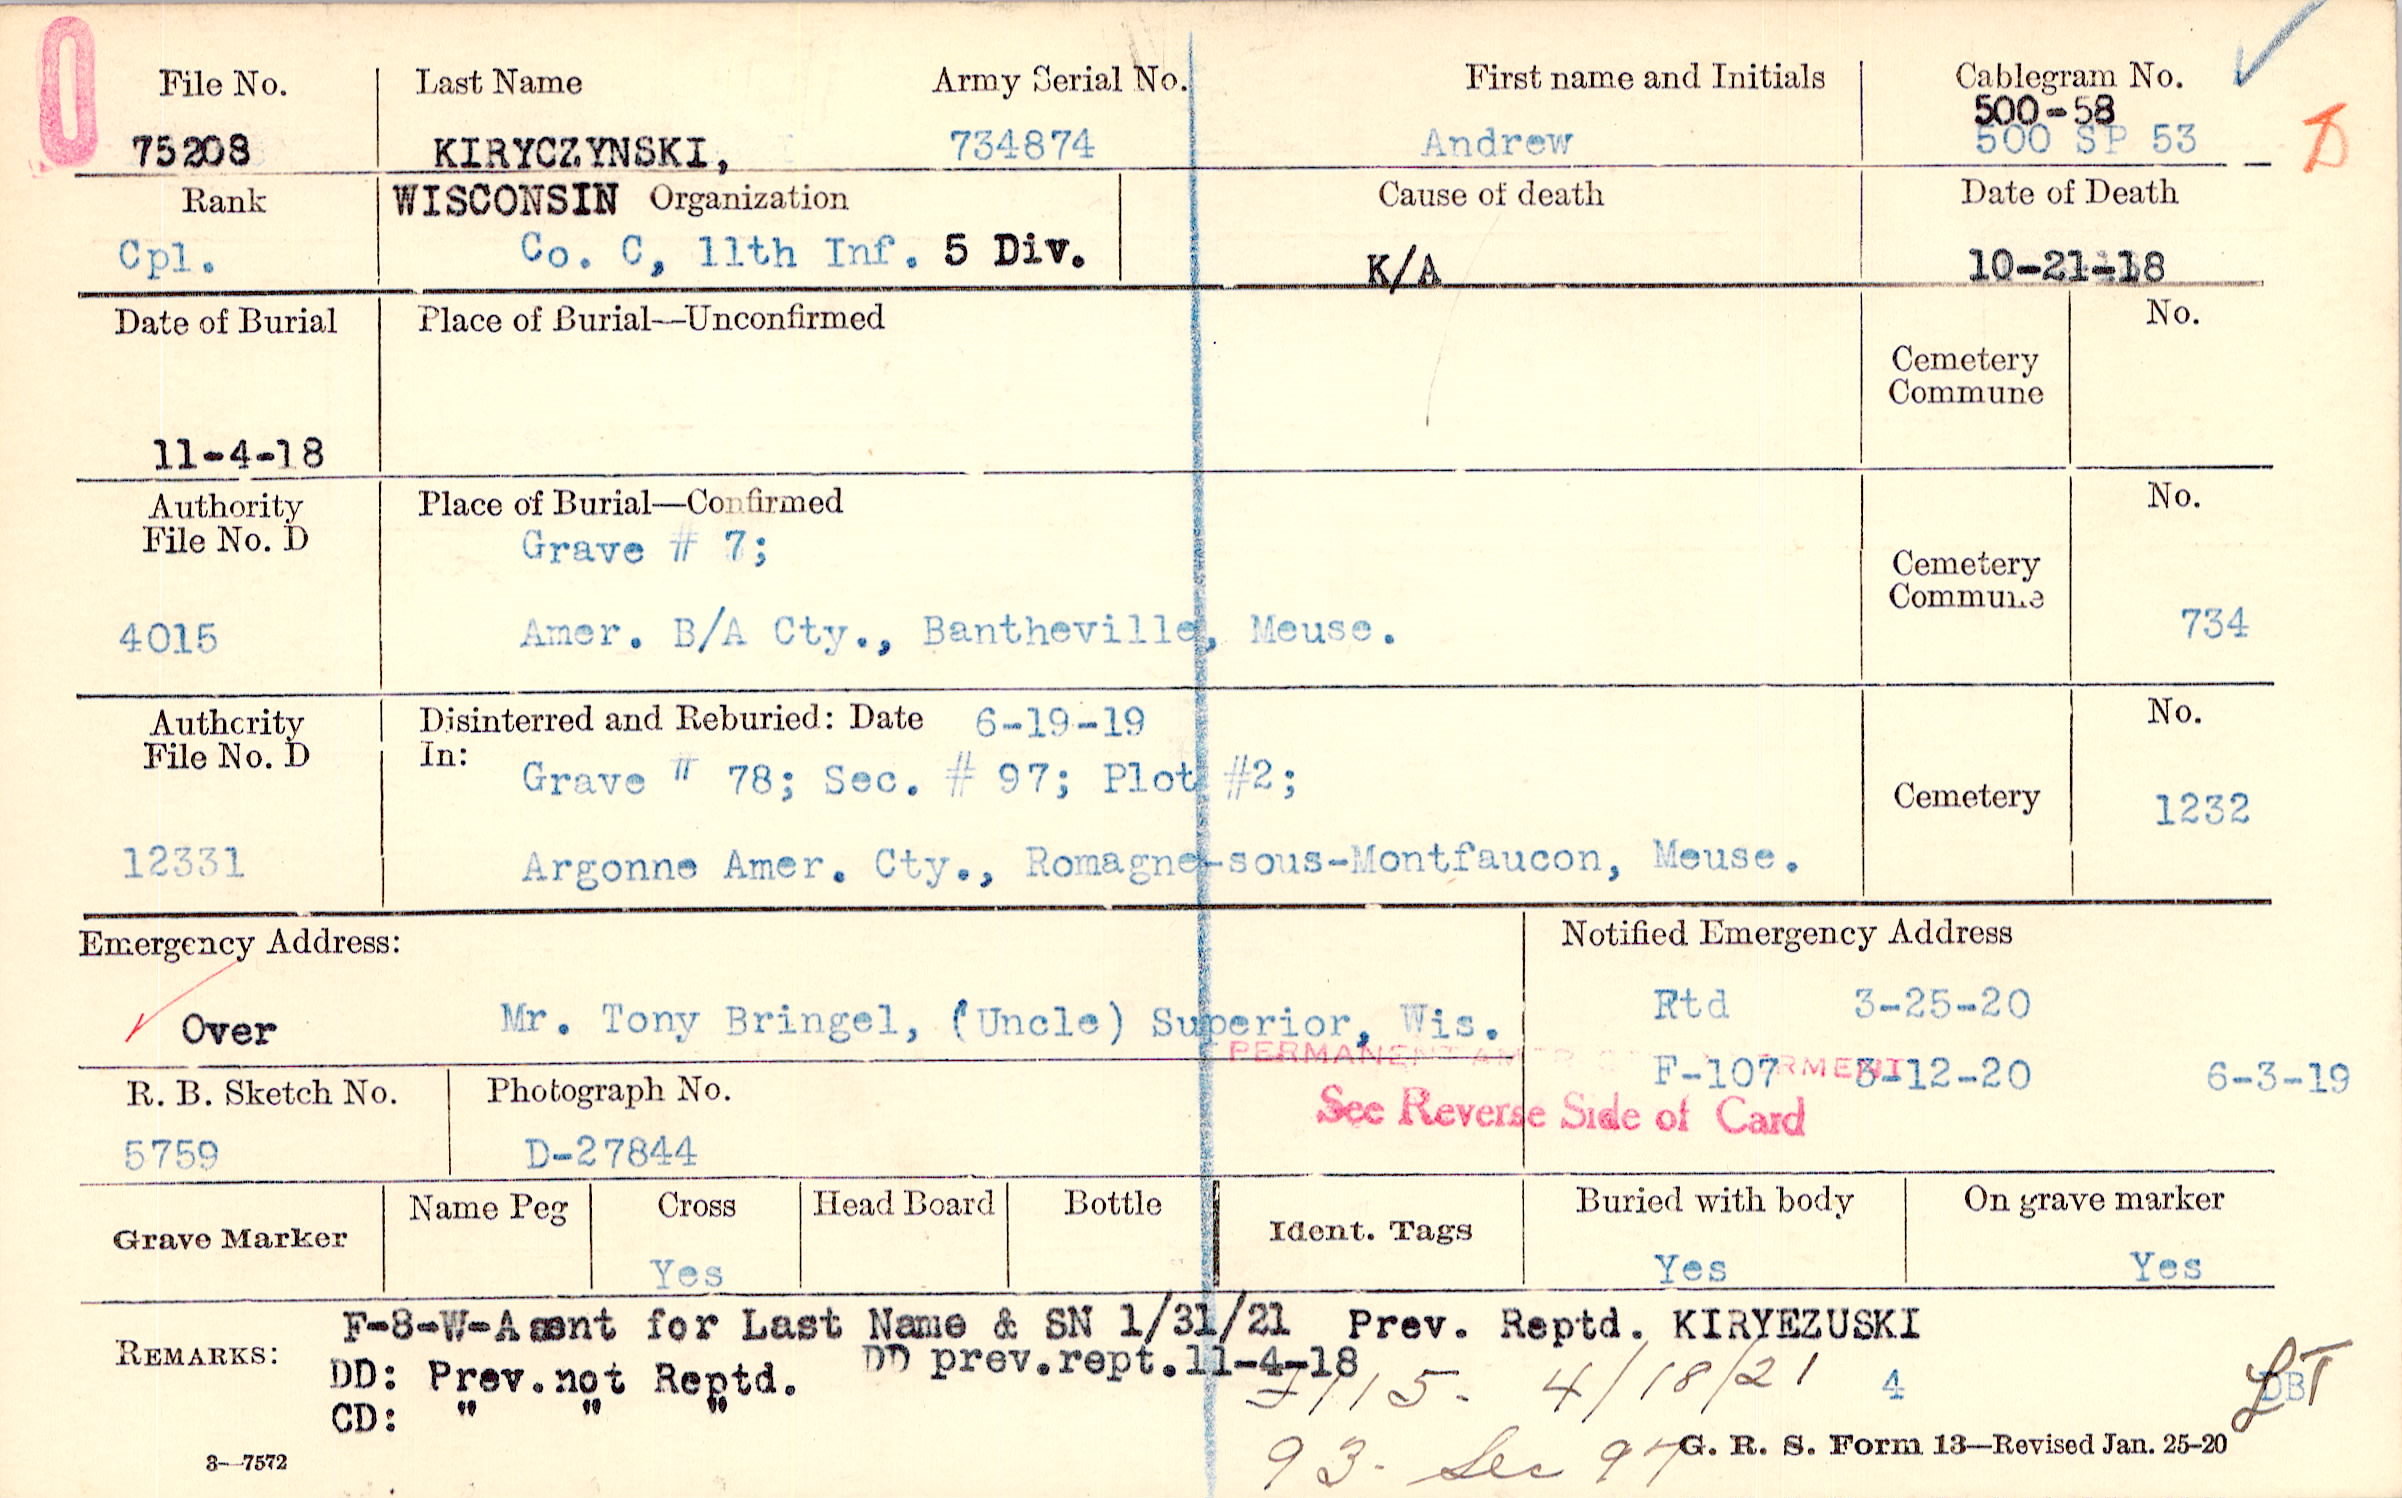 0
File No. Last Name Army Serial No. First name and Initials Cablegram No.
500-58
75208 KIRYCZYNSKI, 734874 Andrew 500 SP 53
D
Rank WISCONSIN Organization Cause of death Date of Death
Cpl. Co. C, 11th Inf. 5 Div. K/A 10-21-18
Date of Burial Place of Burial—Unconfirmed No.
Cemetery
Commune
11-4-18
Authority Place of Burial—Confirmed No.
File No. D Grave # 7;
Cemetery
Commune
4015 Amer. B/A Cty., Bantheville, Meuse. 734
Authority Disinterred and Reburied: Date 6-19-19 No.
File No. D In: Grave # 78; Sec. # 97; Plot #2;
Cemetery 1232
12331 Argonne Amer. Cty., Romagne-sous-Montfaucon, Meuse.
Emergency Address: Notified Emergency Address
Rtd 3-25-20
Over Mr. Tony Bringel, (Uncle) Superior, Wis.
PERMANENT
F-107 3-12-20 6-3-19
R. B. Sketch No. Photograph No. See Reverse Side of Card
5759 D-27844
Grave Marker Name Peg Cross Head Board Bottle Ident. Tags Buried with body On grave marker
Yes Yes Yes
REMARKS: F-8-W-Amnt for Last Name & SN 1/31/21 Prev. Reptd. KIRYEZUSKI
DD: Prev. not Reptd. DD prev.rept.11-4-18
115. 4/18/21 4
CD: " " "
93. Sec 97 G. R. S. Form 13—Revised Jan. 25-20
3—7572